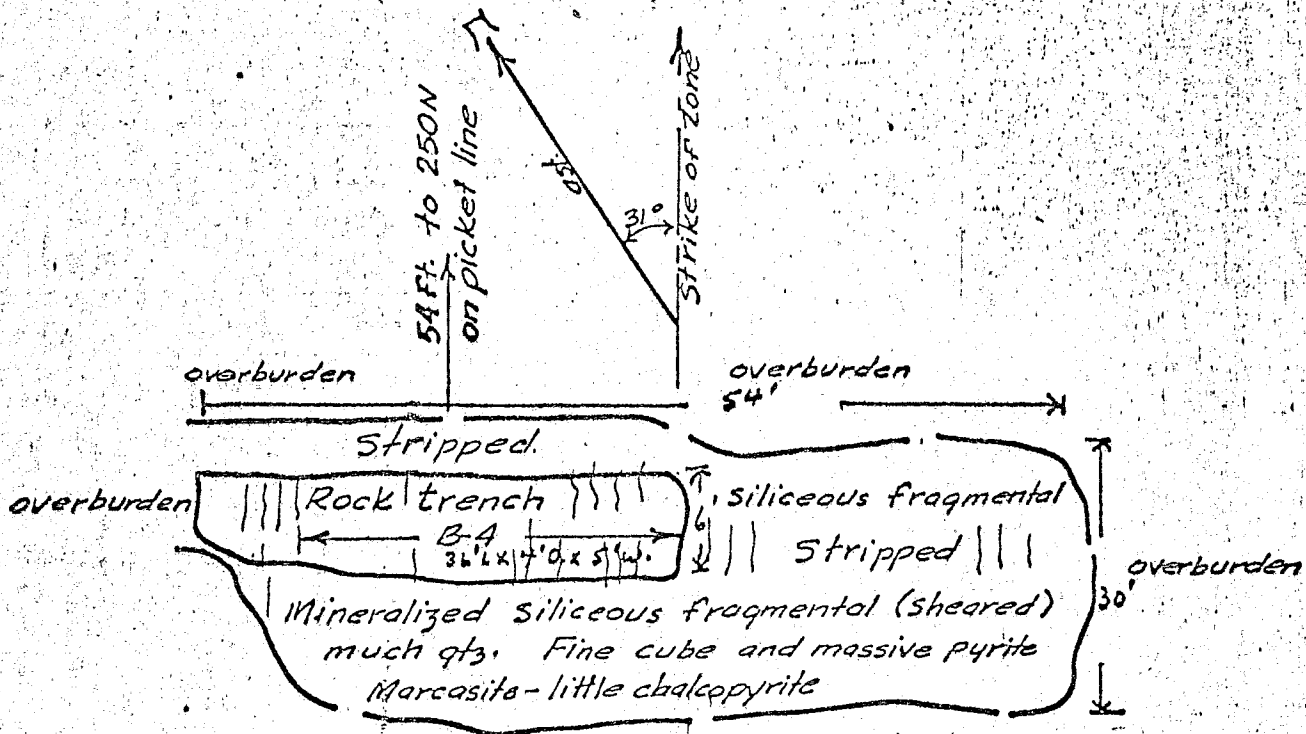 54 Ft. to 250N
on picket line
50'
31°
Strike of zone
overburden
overburden
54'
Stripped.
overburden
Rock trench
6'
siliceous fragmental
B-4
Stripped
36'L x 4'D x 5'W.
overburden
30'
Mineralized siliceous fragmental (sheared)
much qtz. Fine cube and massive pyrite
Marcasite - little chalcopyrite